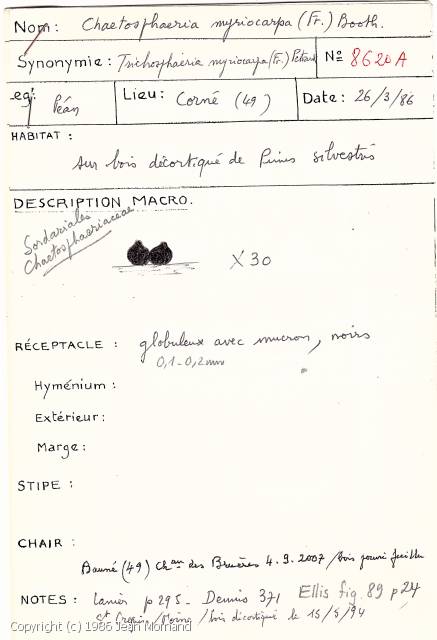 Nom: Chaetosphaeria myriocarpa (Fr.) Booth.
Synonymie: Trichosphaeria myriocarpa (Fr.) Petrak Nº 8620A
Leg: Péan Lieu: Corné (49) Date: 26/3/86
HABITAT:
sur bois décortiqué de Pinus silvestris
DESCRIPTION MACRO.
Sordariales
Chaetosphaeriaceae
X 30
RÉCEPTACLE : globuleux avec mucron, noirs
0,1-0,2mm
Hyménium:
Extérieur:
Marge:
STIPE :
CHAIR :
Bauné (49) Chan des Bruères 4.9.2007 / bois pourri feuillu
NOTES : Lanier p 295 - Dennis 371 Ellis fig. 89 p 24
bois décortiqué le 15/5/94
Copyright (c) 1986 Jean Mornand